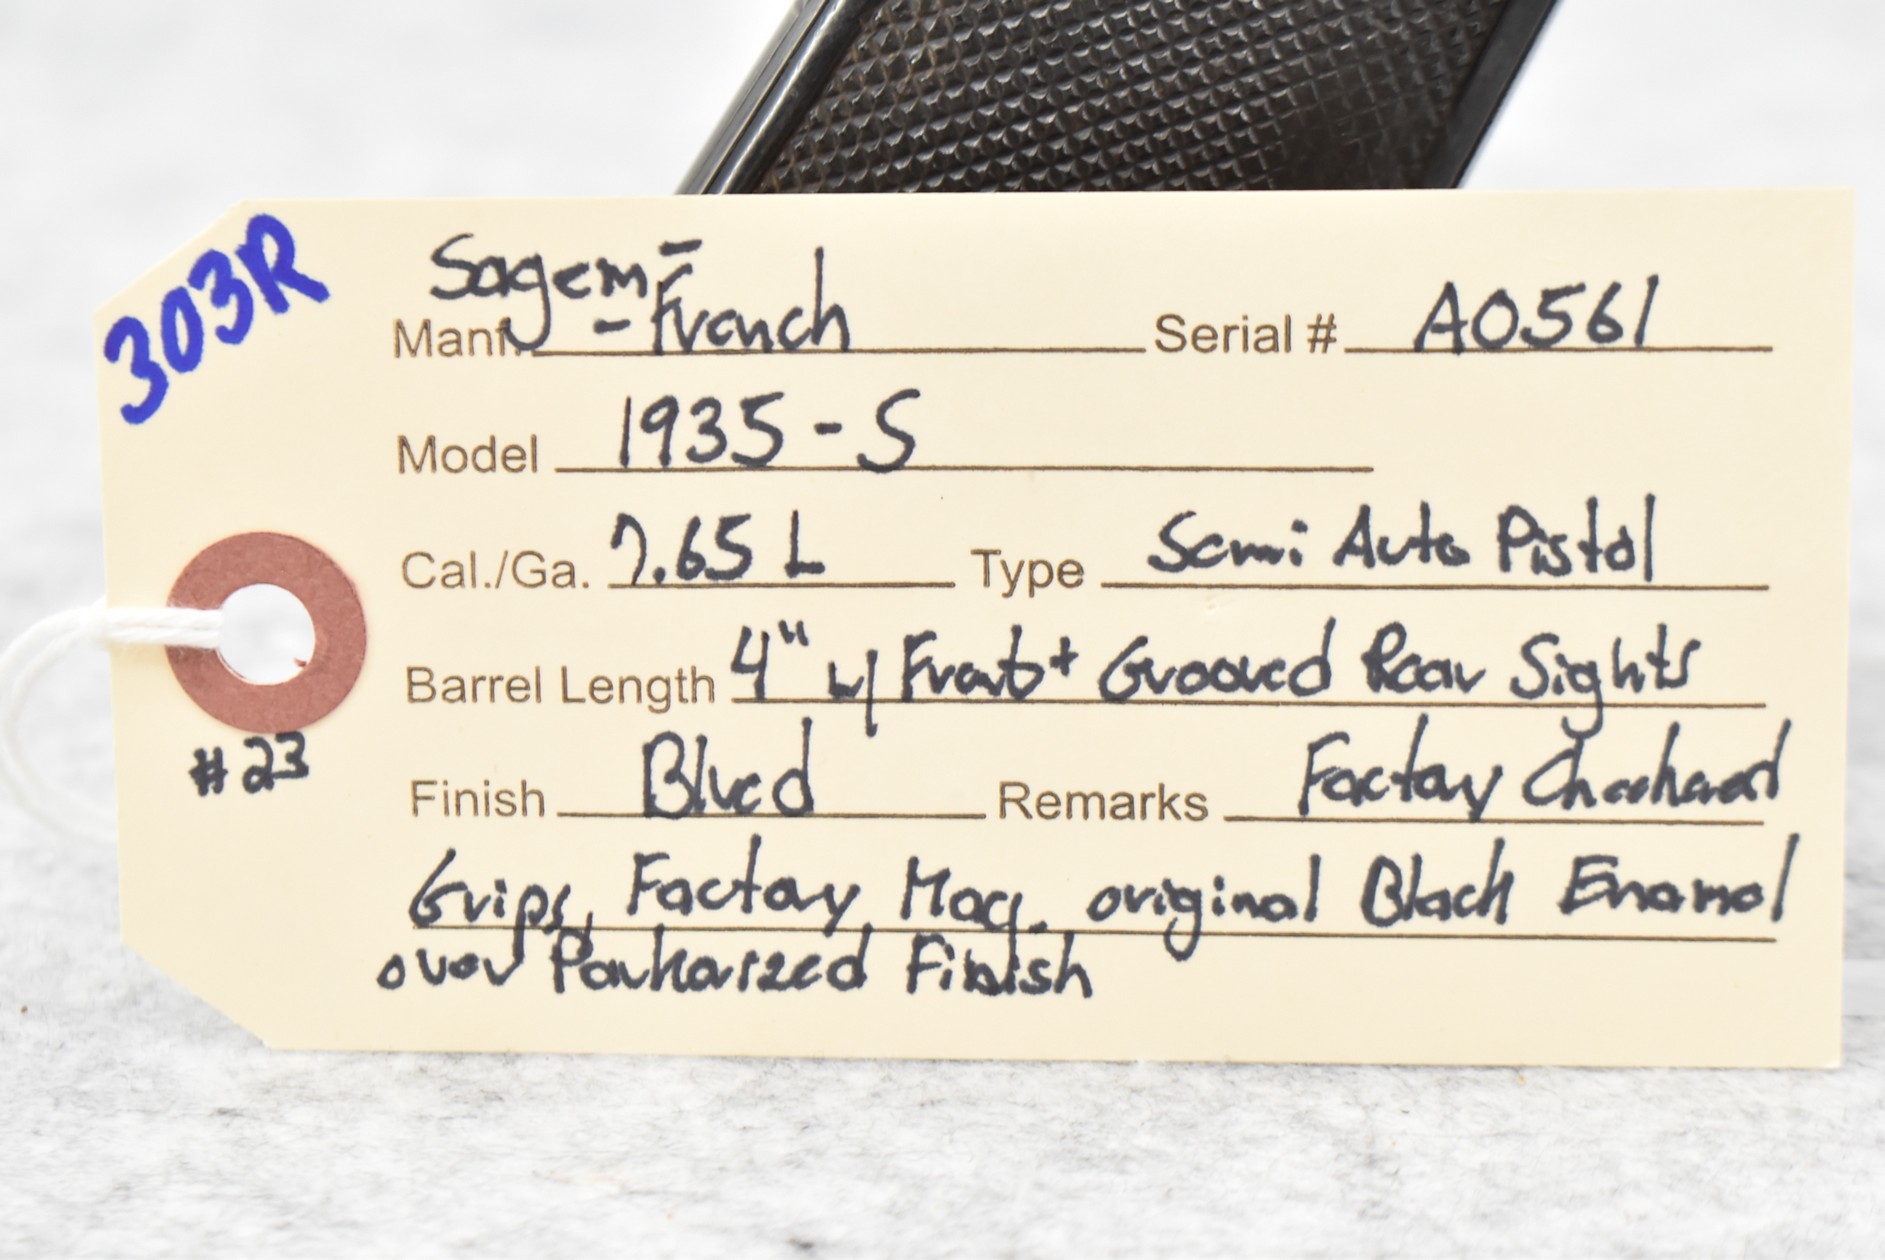 303R
Sagem -
Manf. - French Serial # A0561
Model 1935-S
Cal./Ga. 7.65 L Type Semi Auto Pistol
Barrel Length 4" w/ Front + Grooved Rear Sights
#23
Finish Blued Remarks Factory Checkered
Grips, Factory Mag. original Black Enamel
over Parkarized Finish